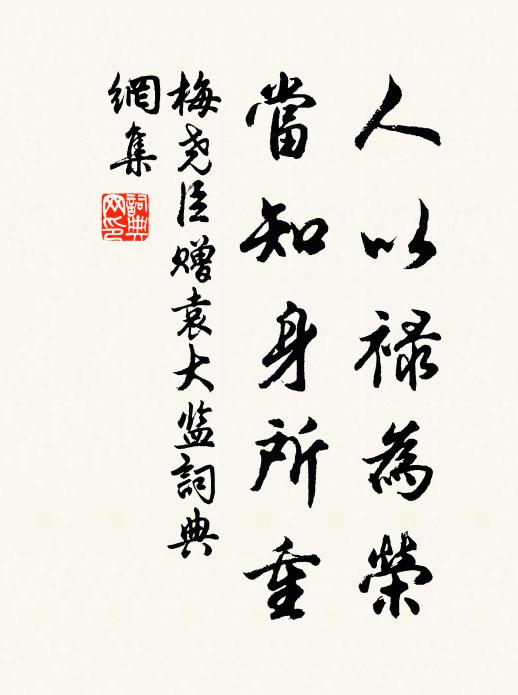 人以禄為榮
當知身所重
梅尧臣赠袁大监詞典
網集
詞典
网印